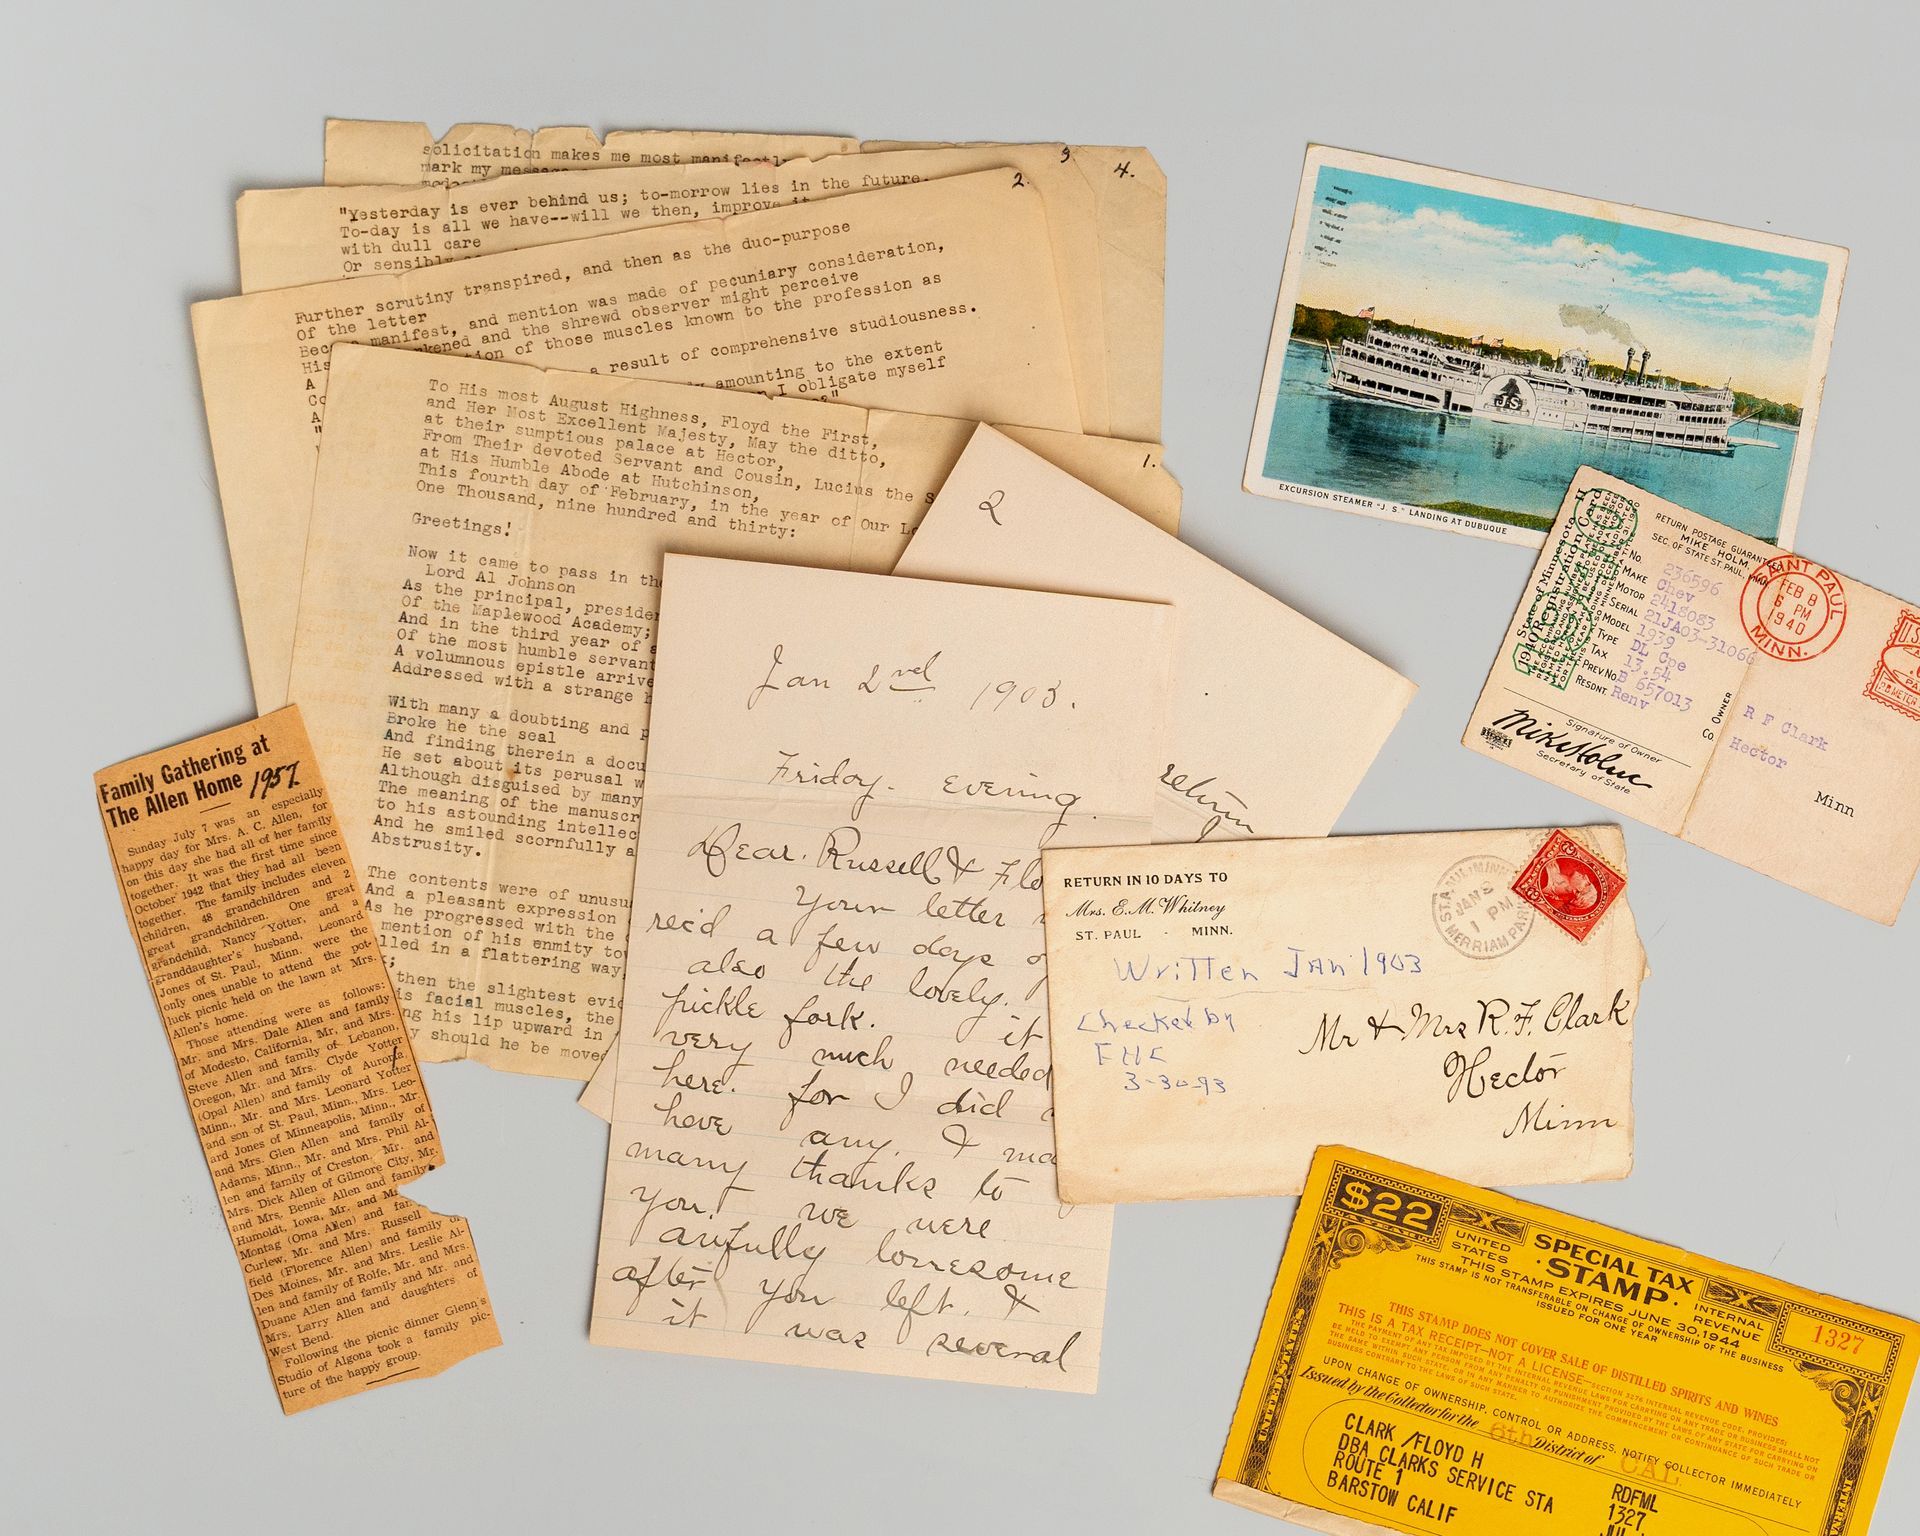 solicitation makes me most manifestly
mark my
3.
4.
"Yesterday is ever behind us; to-morrow lies in the future.
To-day is all we have--will we then, improve it
with dull care
Or sensibly
2.
Further scrutiny transpired, and then as the duo-purpose
Of the letter
Became manifest, and mention was made of pecuniary consideration,
His and the shrewd observer might perceive
A of those muscles known to the profession as
a result of comprehensive studiousness.
amounting to the extent
I obligate myself
1.
To His most August Highness, Floyd the First,
and Her Most Excellent Majesty, May the ditto,
at their sumptious palace at Hector,
From Their devoted Servant and Cousin, Lucius the
at His Humble Abode at Hutchinson,
This fourth day of February, in the year of Our
One Thousand, nine hundred and thirty:
Greetings!
Now it came to pass in the
Lord Al Johnson
As the principal,
Of the Maplewood Academy;
And in the third year of
Of the most humble servant
A volumnous epistle
Addressed with a strange
With many a doubting and
Broke he the seal
And finding therein a
He set about its perusal
Although disguised by many
The meaning of the
to his astounding
And he smiled scornfully
Abstrusity.
The contents were of
And a pleasant expression
As he progressed with the
mention of his enmity
in a flattering way
then the slightest
facial muscles, the
his lip upward in
should he be
Family Gathering at
The Allen Home 1957
Sunday July 7 was an especially
happy day for Mrs. A. C. Allen, for
on this day she had all of her family
together. It was the first time since
October 1942 that they had all been
together. The family includes eleven
children, 48 grandchildren and 2
great grandchildren. One great
grandchild, Nancy Yotter, and a
granddaughter's husband, Leonard
Jones of St. Paul, Minn. were the
only ones unable to attend the pot-
luck picnic held on the lawn at Mrs.
Allen's home.
Those attending were as follows:
Mr. and Mrs. Dale Allen and family
of Modesto, California, Mr. and Mrs.
Steve Allen and family of Lebanon,
Oregon, Mr. and Mrs. Clyde Yotter
(Opal Allen) and family of Aurora,
Minn., Mr. and Mrs. Leonard Yotter
and son of St. Paul, Minn., Mrs. Leo-
nard Jones of Minneapolis, Minn., Mr.
and Mrs. Glen Allen and family of
Adams, Minn., Mr. and Mrs. Phil Al-
len and family of Creston, Mr. and
Mrs. Dick Allen of Gilmore City, Mr.
and Mrs. Bennie Allen and family
Humboldt, Iowa, Mr. and
Montag (Oma Allen) and
Curlew, Mr. and Mrs. Russell
field (Florence Allen) and family of
Des Moines, Mr. and Mrs. Leslie Al-
len and family of Rolfe, Mr. and Mrs.
Duane Allen and family and Mr. and
Mrs. Larry Allen and daughters of
West Bend.
Following the picnic dinner Glenn's
Studio of Algona took a family pic-
ture of the happy group.
2
return
Jan 2nd 1903.
Friday. evening.
Dear. Russell &
Your letter
rec'd a few days
also the lovely.
pickle fork. it
very much needed
here. for I did
have any. &
many thanks to
you. we were
awfully lonesome
after you left. &
it was several
EXCURSION STEAMER "J. S." LANDING AT DUBUQUE
J.S.
State of Minnesota
1940 Registration Card
RETURN POSTAGE GUARANTEED
MIKE HOLM
SEC. OF STATE ST. PAUL, MINN.
No. 236596
MAKE Chev
MOTOR 2418083
SERIAL 21JA03-31066
MODEL 1939
TYPE DL Cpe
TAX 13.54
PREV. No. B 657013
RESDNT. Renv
Co.
OWNER
Signature of Owner
Mike Holm
Secretary of State
SAINT PAUL
FEB 8
6 PM
1940
MINN.
R F Clark
Hector
Minn
RETURN IN 10 DAYS TO
Mrs. E. M. Whitney
ST. PAUL · MINN.
JAN
1 PM
MERRIAM PARK
Written JAN 1903
Checked by
FHC
3-30-93
Mr & Mrs R. F. Clark
Hector
Minn
$22
UNITED STATES
SPECIAL TAX STAMP
INTERNAL REVENUE
1327
THIS STAMP EXPIRES JUNE 30, 1944
THIS STAMP IS NOT TRANSFERABLE ON CHANGE OF OWNERSHIP OF THE BUSINESS
ISSUED FOR ONE YEAR
THIS STAMP DOES NOT COVER SALE OF DISTILLED SPIRITS AND WINES
THIS IS A TAX RECEIPT—NOT A LICENSE—SECTION 3276 INTERNAL REVENUE CODE, PROVIDES:
UPON CHANGE OF OWNERSHIP, CONTROL OR ADDRESS, NOTIFY COLLECTOR IMMEDIATELY
Issued by the Collector for the 6th District of CAL.
CLARK /FLOYD H
DBA CLARKS SERVICE STA
ROUTE 1
BARSTOW CALIF
RDFML
1327